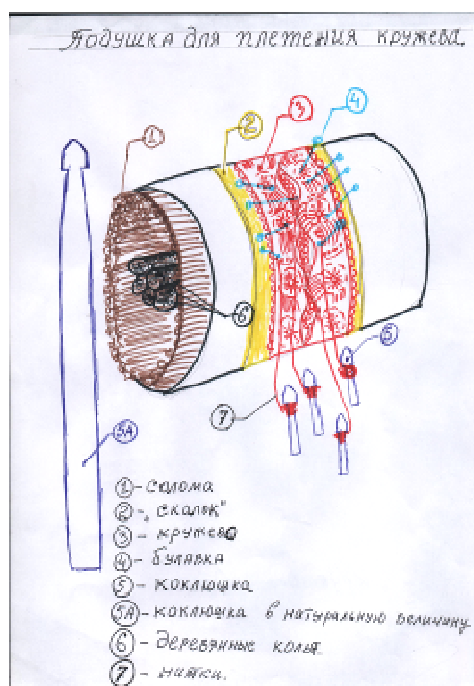 Подушка для плетения кружева.
1
2
3
4
6
5
7
5А
1 - солома
2 - „скалок"
3 - кружево
4 - булавка
5 - коклюшка
5А - коклюшка в натуральную величину
6 - деревянные колья.
7 - нитки.